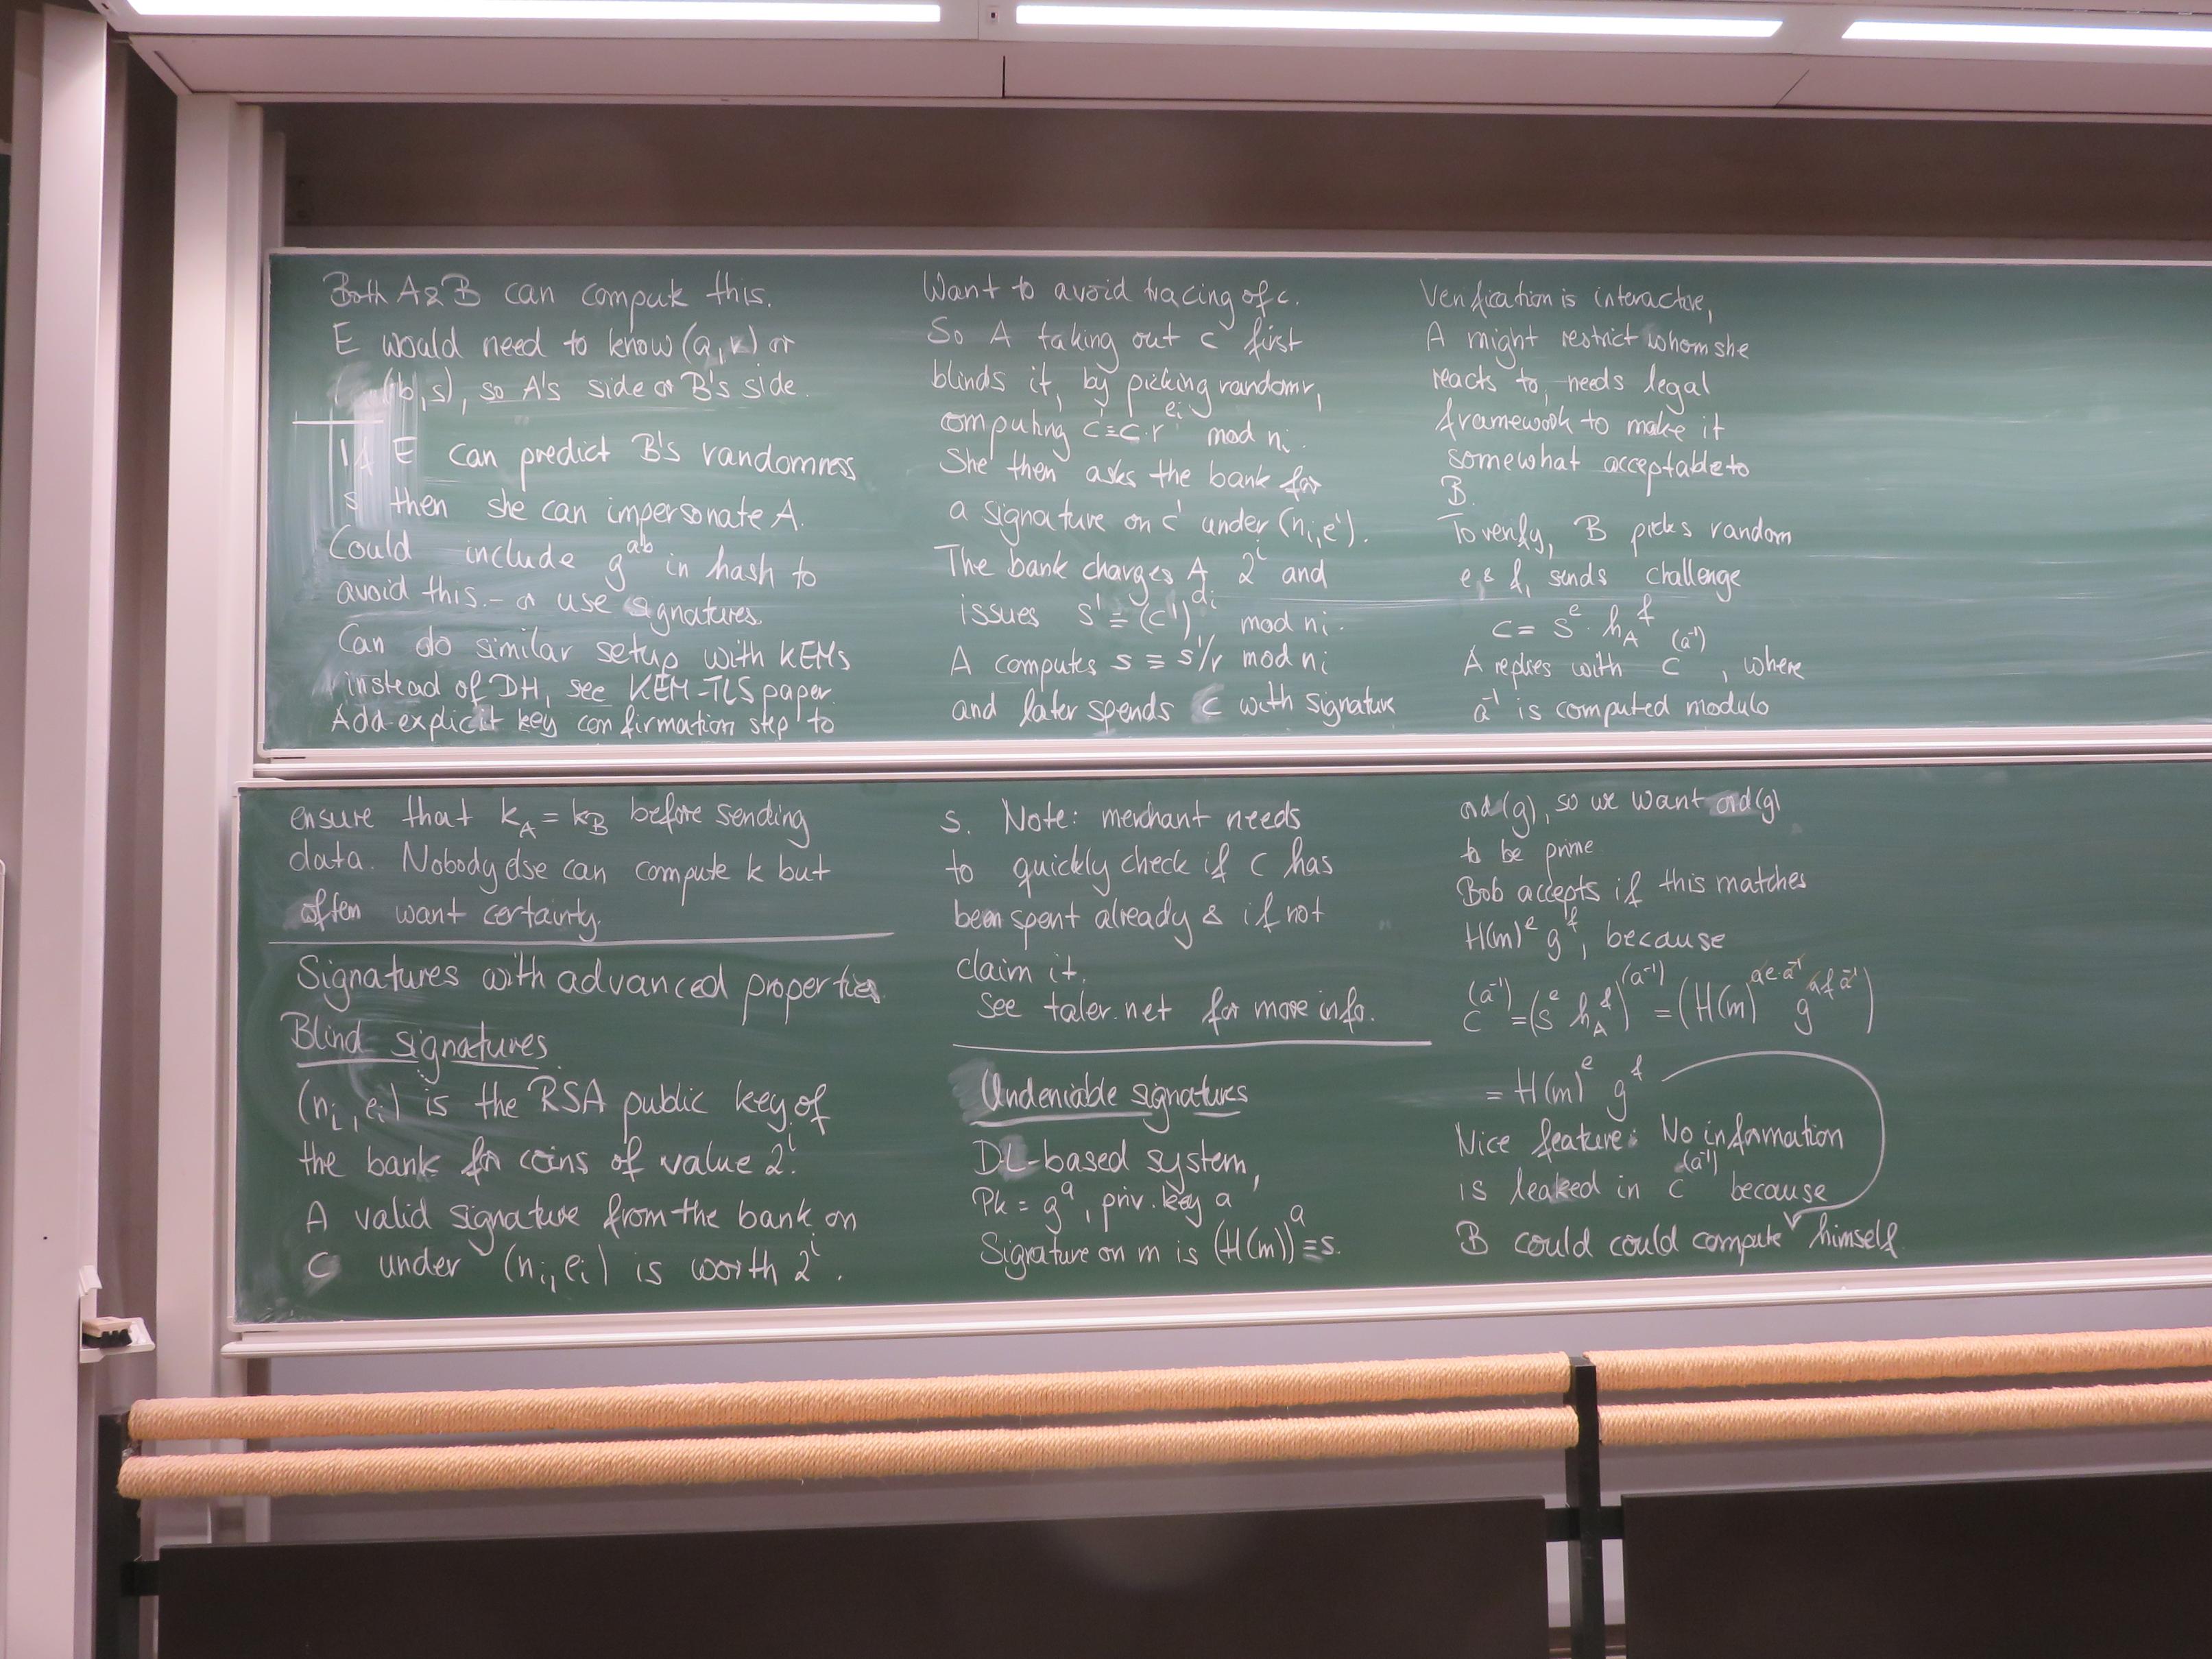 Both A & B can compute this.
E would need to know (a,r) or
(b,s), so A's side or B's side.
If E can predict B's randomness
s then she can impersonate A.
Could include g^{ab} in hash to
avoid this. – or use signatures.
Can do similar setup with KEMs
instead of DH, see KEM-TLS paper.
Add explicit key confirmation step to
ensure that k_A = k_B before sending
data. Nobody else can compute k but
often want certainty.
Signatures with advanced properties
Blind signatures.
(n_i, e_i) is the RSA public key of
the bank for coins of value 2^i.
A valid signature from the bank on
C under (n_i, e_i) is worth 2^i.
Want to avoid tracing of c.
So A taking out c first
blinds it, by picking random r,
computing c' ≡ c·r^{e_i} mod n_i.
She then asks the bank for
a signature on c' under (n_i, e_i).
The bank charges A 2^i and
issues s' ≡ (c')^{d_i} mod n_i.
A computes s ≡ s'/r mod n_i
and later spends C with signature
s. Note: merchant needs
to quickly check if c has
been spent already & if not
claim it.
See taler.net for more info.
Undeniable signatures
DL-based system,
Pk = g^a, priv. key a
Signature on m is (H(m))^a = s.
Verification is interactive,
A might restrict whom she
reacts to, needs legal
framework to make it
somewhat acceptable to
B.
To verify, B picks random
e & f, sends challenge
c = s^e · h_A^f
A replies with c^{(a^{-1})}, where
a^{-1} is computed modulo
ord(g), so we want ord(g)
to be prime
Bob accepts if this matches
H(m)^e g^f, because
c^{(a^{-1})} = (s^e h_A^f)^{(a^{-1})} = (H(m)^{ae·a^{-1}} g^{af a^{-1}})
= H(m)^e g^f
Nice feature: No information
is leaked in c^{(a^{-1})} because
B could could compute himself